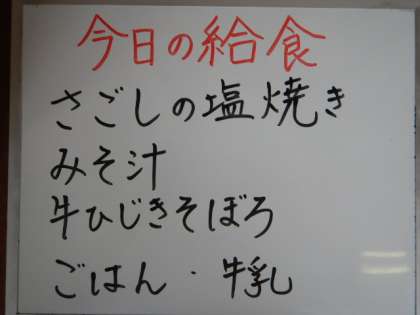 今日の給食
さごしの塩焼き
みそ汁
牛ひじきそぼろ
ごはん・牛乳